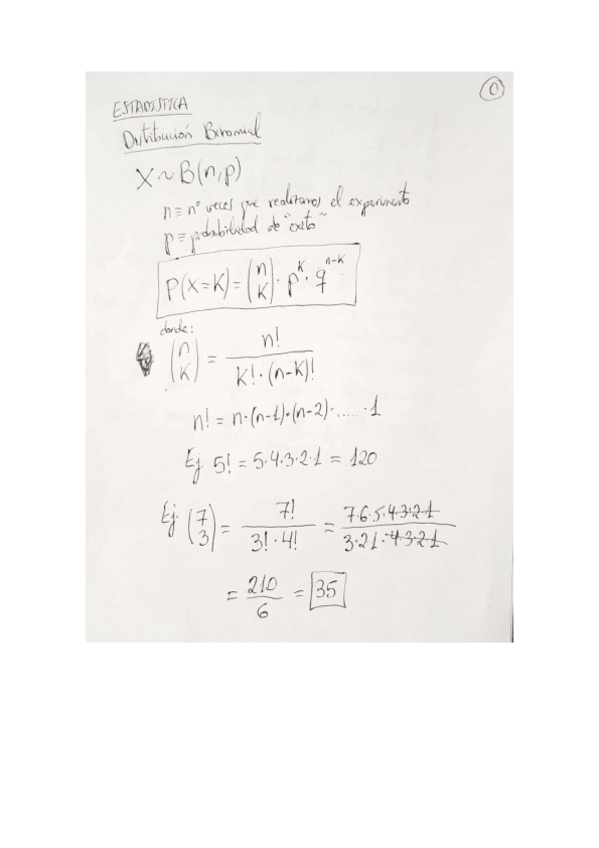 0
ESTADISTICA
Distribución Binomial
X ~ B(n,p)
n ≡ nº veces que realizamos el experimento
p ≡ probabilidad de "éxito"
P(X=K) = (n K) · p^K · q^(n-K)
donde:
(n K) = n! / K!·(n-K)!
n! = n·(n-1)·(n-2)· ..... ·1
Ej 5! = 5·4·3·2·1 = 120
Ej: (7 3) = 7! / 3!·4! = 7·6·5·4·3·2·1 / 3·2·1·4·3·2·1
= 210 / 6 = 35